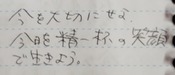 今を大切にせよ
今日を精一杯の笑顔
で生きよう。